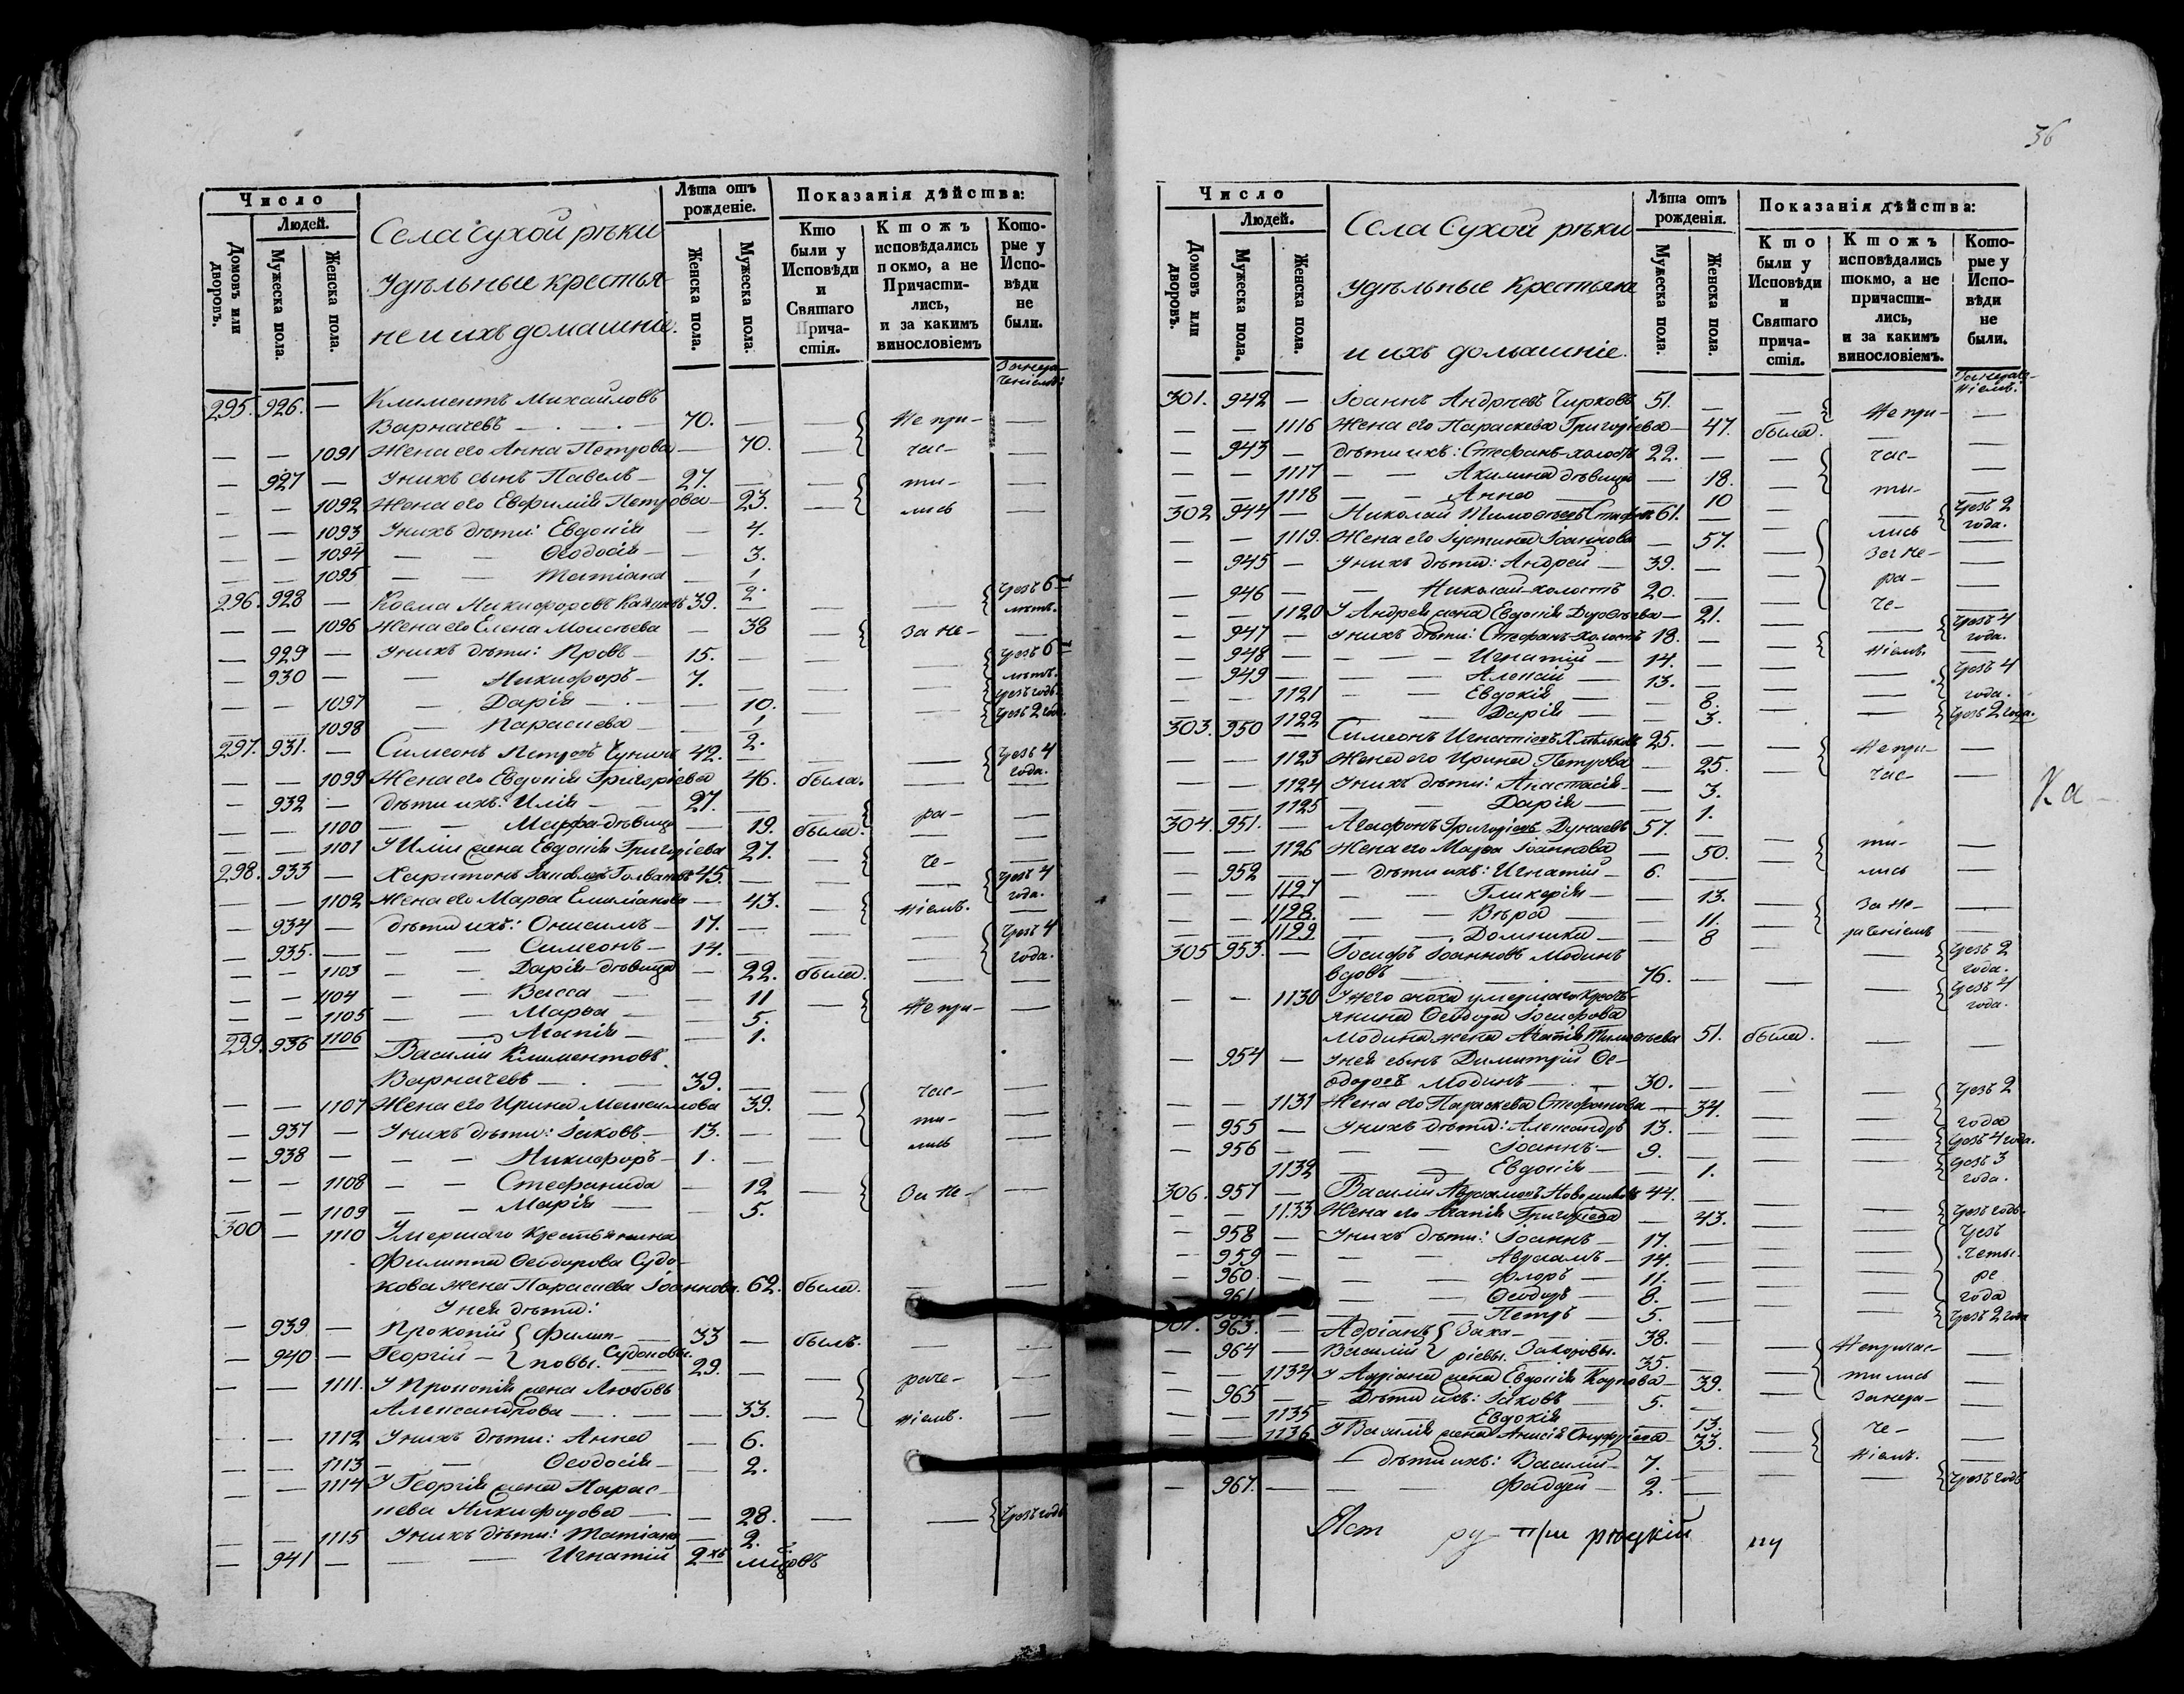 Число
Людей.
Домовъ или дворовъ.
Мужеска пола.
Женска пола.
Села Сухой рѣки
Удѣльные крестья-
не и ихъ домашніе.
Лѣта отъ рожденіе.
Женска пола.
Мужеска пола.
Показанія дѣйства:
Кто были у Исповѣди и Святаго Прича-стія.
Ктожъ исповѣдались покмо, а не Причасти-лись, и за какимъ винословіемъ
Кото-рые у Испо-вѣди не были.
295. 926. — Климентъ Михайловъ
Варначевъ — 70. — — Не при- —
— — 1091 Жена его Анна Петрова — 70. — час- —
— 927 — У нихъ сынъ Павелъ — 27. — — ти- —
— — 1092 Жена его Евфимія Петрова — 23. — лись —
— — 1093 У нихъ дѣти: Евдокія — 4.
— — 1094 — — Ѳеодосія — 3.
— — 1095 — — Татіана — 1
296. 928 — Косма Никифоровъ 39. 2. — — чрезъ 6 лѣтъ.
— — 1096 Жена его Елена Моисѣева — 38 — За не- —
— 929 — У нихъ дѣти: Провъ — 15. — — — чрезъ 6
— 930 — — Никифоръ — 7. — — — лѣтъ.
— — 1097 — Дарія — 10. — — чрезъ годъ.
— — 1098 — Параскева — 1 — — чрезъ 2 года.
297. 931. — Симеонъ Петровъ Чунинъ 42. 2. — — чрезъ 4 года.
— — 1099 Жена его Евдокія Григоріева 46. была. — —
— 932 — дѣти ихъ: Илія — 27. — — ра- —
— — 1100 — — Марфа-дѣвица — 19. была. — —
— — 1101 У Иліи жена Евдокія Григоріева 27. — че- —
298. 933 — Харитонъ Іаковлевъ 45. — — — чрезъ 4 года.
— — 1102 Жена его Марѳа Емиліанова — 43. — ніемъ. —
— 934 — дѣти ихъ: Онисимъ — 17. — — — чрезъ 4
— 935. — — Симеонъ — 14. — — — года.
— — 1103 — — Дарія-дѣвица — 22. была. — —
— — 1104 — — Васса — 11 — Не при- —
— — 1105 — — Марѳа — 5.
— — 1106 — — Агапія — 1.
299. 936 Василій Климентовъ
Варначевъ — 39. — — час- —
— — 1107 Жена его Ирина Максимова 39. — ти- —
— 937 — У нихъ дѣти: Іаковъ — 13. — — лись —
— 938 — — — Никифоръ — 1. —
— — 1108 — — Стефанида — 12 — За не- —
— — 1109 — — Марія — 5.
300 — 1110 Умершаго Крестьянина
Филиппа Ѳеодорова Судо-
кова жена Параскева Іоаннова. 62. была. — —
У нея дѣти:
— 939 — Прокопій { Филип- — 33 — былъ. —
— 940 — Георгій — { повы. Судоковы. 29. — —
— — 1111. У Прокопія жена Любовь раче- —
Александрова — — 33. — ніемъ. —
— — 1112 У нихъ дѣти: Анна — 6.
— — 1113 — — Ѳеодосія — 2.
— — 1114 У Георгія жена Парас-
кева Никифорова — — 28. — — чрезъ годъ
— — 1115 У нихъ дѣти: Татіана — 2.
— 941 — — — Игнатій 2хъ мѣсяцовъ
36
Число
Людей.
Домовъ или дворовъ.
Мужеска пола.
Женска пола.
Села Сухой рѣки
удѣльные Крестьяне
и ихъ домашніе.
Лѣта отъ рожденія.
Мужеска пола.
Женска пола.
Показанія дѣйства:
Кто были у Исповѣди и Святаго прича-стія.
Ктожъ исповѣдались токмо, а не причасти-лись, и за какимъ винословіемъ.
Кото-рые у Испо-вѣди не были.
301. 942 — Іоаннъ Андреевъ Чирковъ 51. — — Не при- —
— — 1116 Жена его Параскева Григоріева — 47. была. — —
— 943 — дѣти ихъ: Стефанъ-холостъ 22. — — час- —
— — 1117 — — Акилина дѣвица — 18. — —
— — 1118 — — Анна — 10 — ти- —
302 944 — Николай Тимоѳѣевъ 61. — — — чрезъ 2 года.
— — 1119. Жена его Іустина Іоаннова — 57. — лись —
— 945 — У нихъ дѣти: Андрей — 39. — — За не- —
— 946 — — Николай-холостъ 20. — — ра- —
— — 1120 У Андрея жена Евдокія — 21. — че- —
— 947 — У нихъ дѣти: Стефанъ-холостъ 18. — — — чрезъ 4 года.
— 948 — — — Игнатій — 14. — — ніемъ. —
— 949 — — — Алексій — 13. — — — чрезъ 4
— — 1121 — — Евдокія — 8. — — года.
— — 1122 — — Дарія — 3. — — чрезъ 2 года.
303. 950 — Симеонъ Игнатіевъ 25. — — Не при- —
— — 1123 Жена его Ирина Петрова — 25. — час- —
— — 1124 У нихъ дѣти: Анастасія — 3.
— — 1125 — — Дарія — 1.
304. 951. — Агафонъ Григоріевъ Дунаевъ 57. — — ти- —
— — 1126 Жена его Марѳа Іоаннова — 50. — лись —
— 952 — — дѣти ихъ: Игнатій — 6.
— — 1127 — — Гликерія — 13. — За не- —
— — 1128. — — Вѣра — 11. — раченіемъ —
— — 1129 — — Домника — 8
305 953. — Іосифъ Іоанновъ Модинъ чрезъ 2
вдовъ — 76. — — — года.
— — 1130 У него сноха умершаго крестъ- чрезъ 4
янина Ѳеодора Іосифова года.
Модина жена Агапія Тимоѳѣева 51. была. — —
— 954 — У нея сынъ Димитрій Ѳе-
одоровъ Модинъ — 30. — — — чрезъ 2
— — 1131 Жена его Параскева Стефанова — 34. — — года
— 955 — У нихъ дѣти: Александръ 13. — — — чрезъ 4 года.
— 956 — — — Іоаннъ — 9. — — — чрезъ 3
— — 1132 — — Евдокія — 1. года.
306. 957 — Василій Авраамовъ 44. — — — чрезъ годъ.
— — 1133 Жена его Агапія Григоріева — 43. — — чрезъ
— 958 — У нихъ дѣти: Іоаннъ — 17. — — — четы-
— 959 — — — Авраамъ — 14. — — ре
— 960 — — — Флоръ — 11. — — года
961 — — Ѳеодоръ — 8. — —
— — Петръ — 5. — — чрезъ 2 года
307. 963. — Адріанъ { Заха- — 38. — — Непричас- —
— 964 — Василій { ріевы. 35. — — тились —
— — 1134 У Адріана жена Евдокія Карпова — 39. — За нера- —
— 965 — Дѣти ихъ: Іаковъ — 5. —
— — 1135 — Евдокія — 13. — че- —
— — 1136 У Василія жена Анисія Онуфріева — 33. — ніемъ. —
— дѣти ихъ: Василій — 7. —
— 967. — — — Фаддей — 2. — — чрезъ годъ
Ка-